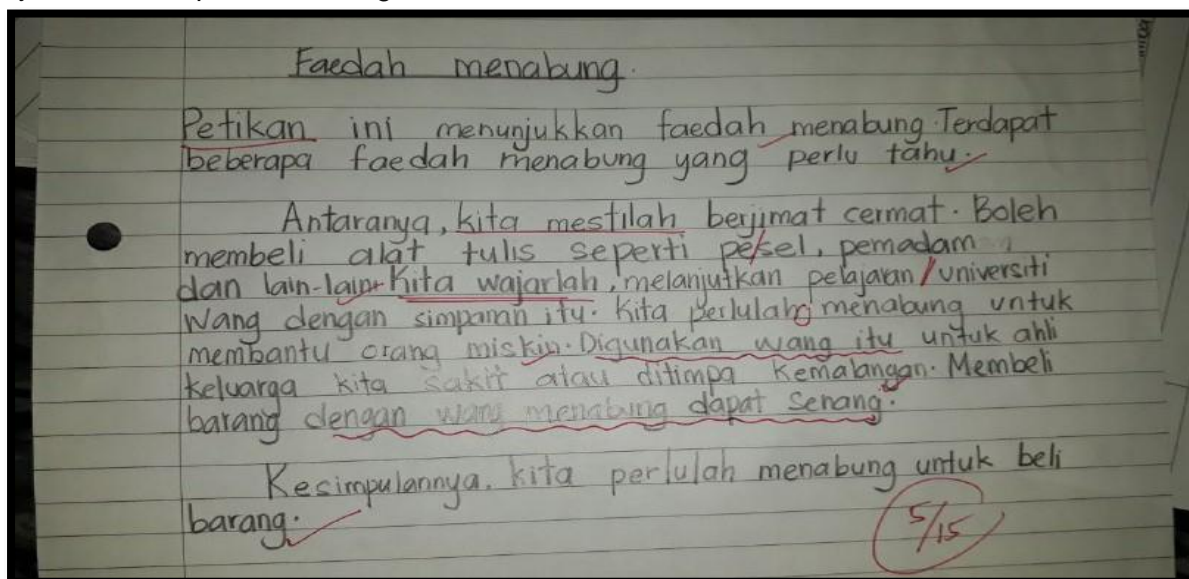 Faedah menabung.
Petikan ini menunjukkan faedah menabung. Terdapat
beberapa faedah menabung yang perlu tahu.
Antaranya, kita mestilah berjimat cermat. Boleh
membeli alat tulis seperti pesel, pemadam
dan lain-lain. Kita wajarlah, melanjutkan pelajaran / universiti
Wang dengan simpanan itu. Kita perlulah menabung untuk
membantu orang miskin. Digunakan wang itu untuk ahli
keluarga kita sakit atau ditimpa kemalangan. Membeli
barang dengan wang menabung dapat senang.
Kesimpulannya, kita perlulah menabung untuk beli
barang.
5/15